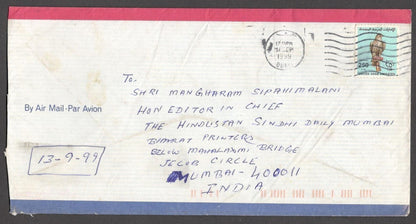 To,
SHRI MANGHARAM SIPAHIMALANI
HON EDITOR IN CHIEF
THE HINDUSTAN SINDHI DAILY MUMBAI
BHARAT PRINTERS
BELOW MAHALAXMI BRIDGE
JECOB CIRCLE
MUMBAI-400011
INDIA
By Air Mail-Par Avion
13-9-99
1999
DUBAI
250